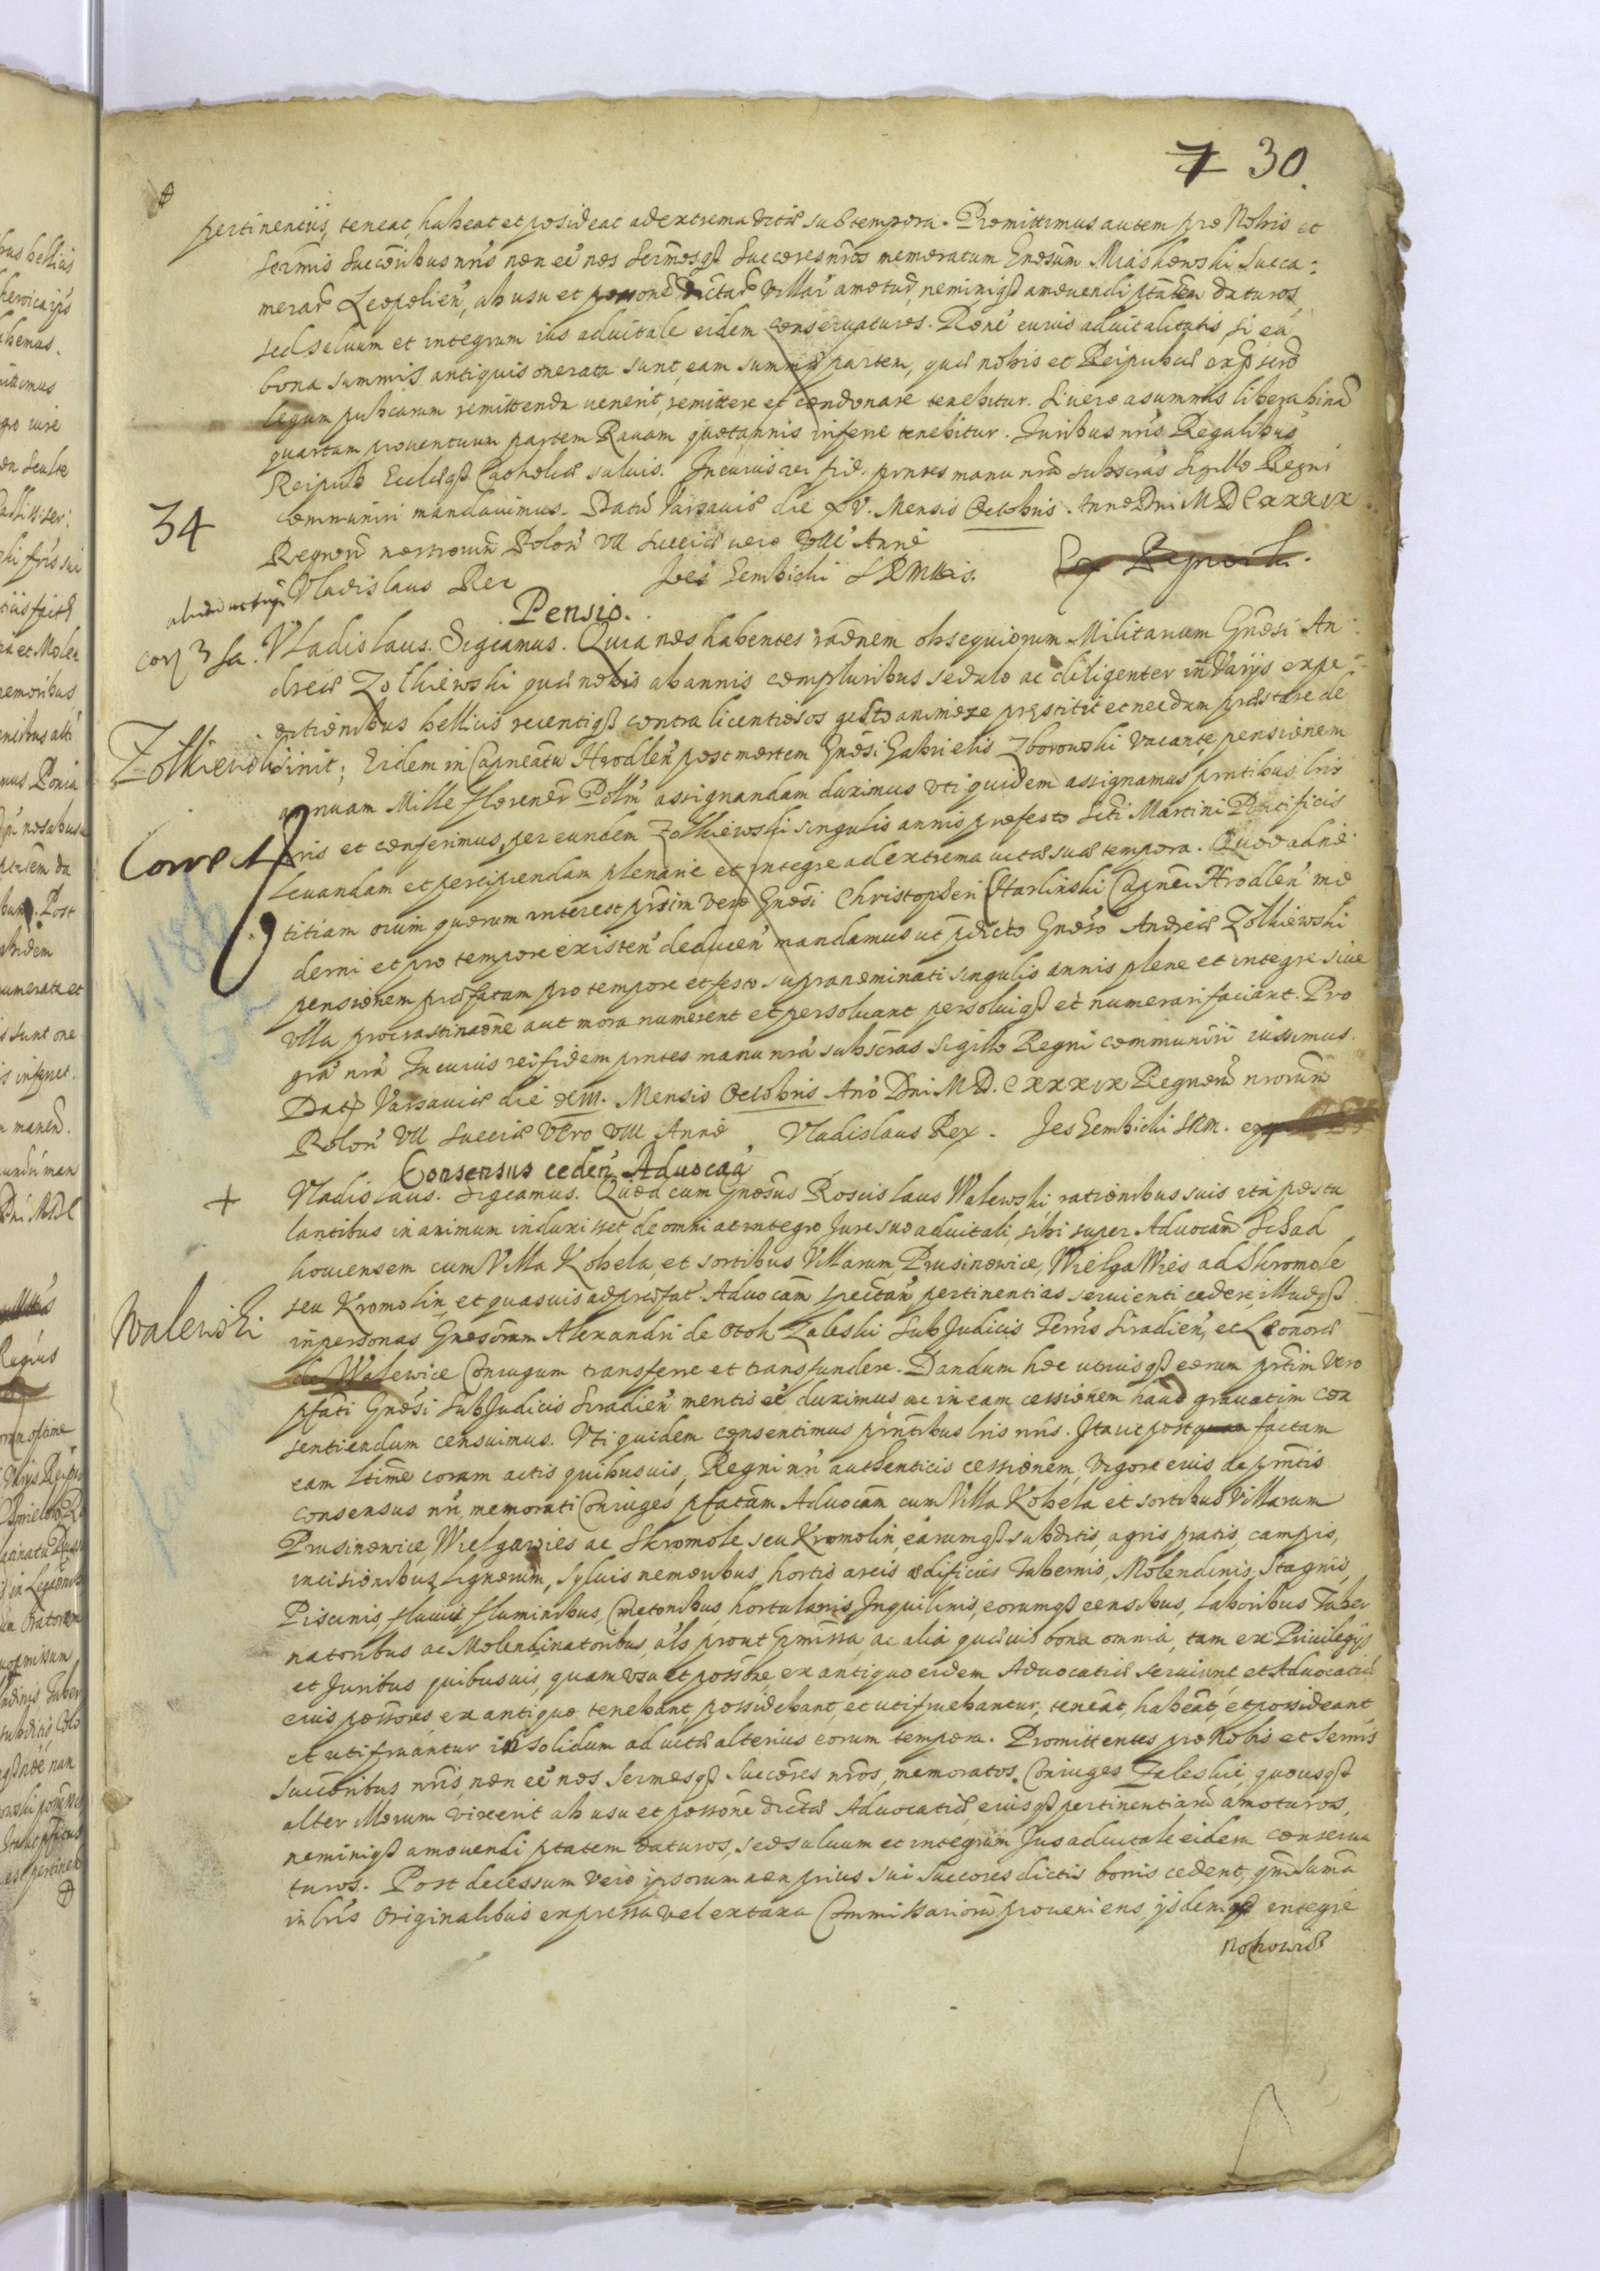 7 30.
pertinentiis, teneat, habeat et possideat ad extrema vitae suae tempora. Promittimus autem pro Nobis et
Sermis Succoribus nris non ee nos Sermosq Succores nros memoratum Gnosum Miaskowski Succa:
merar Leopolien, ab usu et possone dictar Villar amoturos, neminiq amouendi ptatem daturos,
sed saluum et integrum ius aduitale eidem conseruaturos. Rone cuius aduitalitatis, si ea
bona summis antiquis onerata sunt, eam summae partem, quae nobis et Reipublicae ex
legum publicarum remittenda uenerit, remittere et condonare tenebitur. Si uero a summis libera
quartam prouentuum partem Rauam quotannis inferre tenebitur. Iuribus nris Regalibus
Reipub Ecclaeq Catholicae saluis. In cuius rei fid. pntes manu nra subscras Sigillo Regni
communiri mandauimus. Datu Varsauiae die XV. Mensis Octobris. Anno Dni MDCXXXIX
34
Regnoru nostrorum Polon VII Sueciae uero VIII Anno
Vladislaus Rex Joes Gembicki SRMttis. Ex Regno
Pensio.
Vladislaus. Sigcamus. Quia nos habentes raonem obsequiorum Militarium Gnosi An
dreae Zolkiewski quae nobis ab annis compluribus sedulo ac diligenter in Varijs expe
ditionibus bellicis recentiq contra licentiosos gesto animose praestitit et necdum praestare de
Zolkiewski
sinit; Eidem in Capneatu Hrodlen post mortem Gnosi Gabrielis Zborowski vacante pensionem
annuam Mille florenor Pollm assignandam duximus uti quidem assignamus pntibus lris
Correct
nris et conferimus, per eundem Zolkiewski singulis annis pro festo Scti Martini Pontificis
leuandam et percipiendam plenarie et integre ad extrema uitae suae tempora. Quod ad no
titiam oium quorum interest prsim vero Gnosi Christopheri Charlinski Capnei Hrodlen mo
derni et pro tempore existen deducen mandamus ut pdicto Gnoso Andreae Zolkiewski
pensionem praefatam pro tempore et festo supranominati singulis annis plene et integre siue
ulla procrastinaone aut mora numerent et persoluant persoluiq et numerari faciant. Pro
gra nra In cuius rei fidem pntes manu nra subscras Sigillo Regni communiri iussimus.
Dat Varsauiae die XIII. Mensis Octobris Ano Dni MD.CXXXIX Regnoru nrorum
Polon VII Sueciae Vero VIII Anno Vladislaus Rex. Joes Gembicki SRM.
Consensus ceden Advocaa
+
Vladislaus. Sigcamus. Quod cum Gnosus Roscislaus Walewski rationibus suis ita postu
lantibus in animum induxisset, de omni ac integro Jure suo aduitali, sibi super Aduocam Schad
kouiensem cum Villa Kobela, et sortibus Villarum, Prusinowice, Wielga Wies ac Skromole
seu Kromolin, et quasuis ad praefat Aduocam spectan pertinentias seruienti cedere, illudq
Walewski
in personas Gnosorum Alexandri de Otok Zaleski SubJudicis Terris Siradien, et Leonorae
de Walewice Coniugum transferre et transfundere. Dandum hoc utriusq eorum prtim Vero
pfati Gnosi SubJudicis Siradien mentis ee duximus ac in eam cessionem haud grauatim con
sentiendum censuimus. Uti quidem consentimus pntibus lris nris. Ita ut post factam
eam ltime coram actis quibusuis, Regni nri authenticis cessionem, Vigore eius da pntis
consensus nri, memorati Coniuges pfatam Aduocam cum Villa Kobela et sortibus Villarum
Prusinowice, Wielgawies ac Skromole seu Kromolin, earumq subditis, agris, pratis, campis,
incisionibus Lignorum, Syluis nemoribus, hortis areis aedificiis Tabernis, Molendinis, Stagnis,
Piscinis, fluuiis fluminibus, Cmetonibus, hortulanis, Inquilinis, eorumq censibus, Laboribus Taber
natoribus ac Molendinatoribus, als prout pmissa, ac alia quaeuis bona omnia, tam ex Priuilegijs
et Juribus quibusuis, quam usu et possone ex antiquo eidem Aduocatiae seruiunt et Aduocatiae
eius possores ex antiquo tenebant, possidebant, et utifruebantur, teneat, habeat, et possideant
et utifruantur in solidum ad uitae alterius eorum tempora. Promittentes pro Nobis et Sermis
Succoribus nris, non ee nos Sermosq Succores nros, memoratos Coniuges Zaleskie, quousq
alter illorum vixerit ab usu et possone dictae Aduocatiae eiusq pertinentiaru amoturos,
neminiq amouendi ptatem daturos, sed saluum et integrum Jus aduitale eidem conserua
turos. Post decessum vero ipsorum non prius sui Succores dictis bonis cedent, qm Suma
in lris Originalibus expressa vel ex taxa Commissarioru proueniens, ijsdem integre